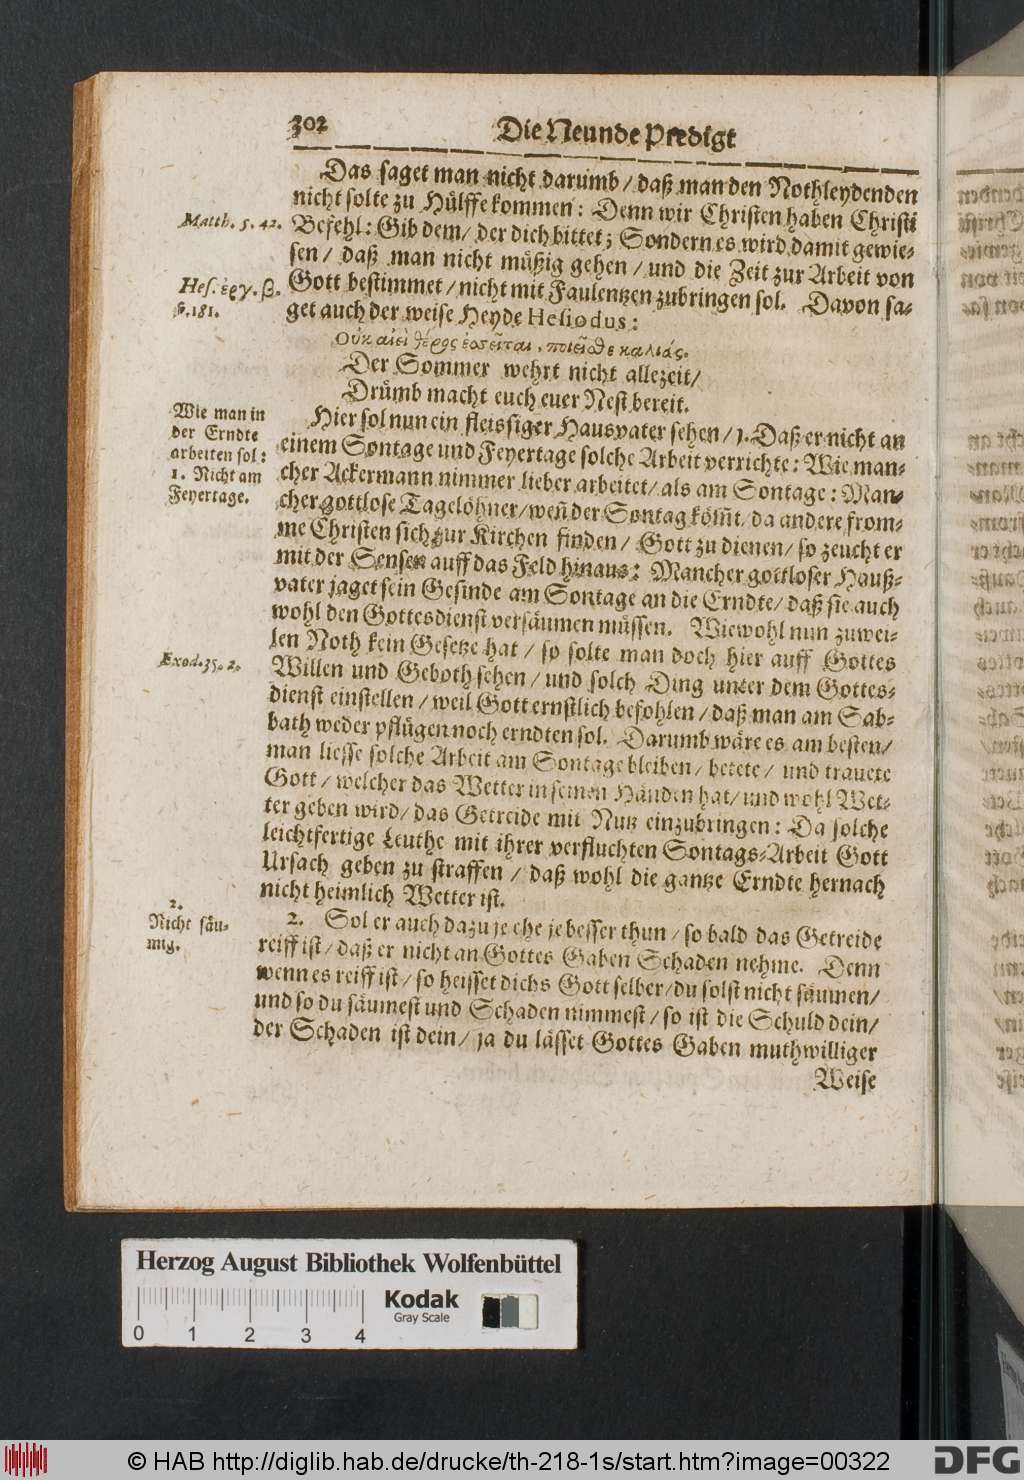 302
Die Neunde Predigt
Das saget man nicht darumb / daß man den Nothleydenden
nicht solte zu Hülffe kommen: Denn wir Christen haben Christi
Matth. 5. 42.
Befehl: Gib dem / der dich bittet; Sondern es wird damit gewie-
sen / daß man nicht müßig gehen / und die Zeit zur Arbeit von
Hes. ἐργ. β.
Gott bestimmet / nicht mit Faulentzen zubringen sol. Davon sa-
p. 181.
get auch der weise Heyde Heliodus:
Οὐκ αἰεὶ θέρος ἐσσεῖται, ποιεῖσθε καλιάς.
Der Sommer wehrt nicht allezeit /
Drümb macht euch euer Nest bereit.
Wie man in
der Erndte
arbeiten sol:
1. Nicht am
Feyertage.
Hier sol nun ein fleissiger Hausvater sehen / 1. Daß er nicht an
einem Sontage und Feyertage solche Arbeit verrichte: Wie man-
cher Ackermann nimmer lieber arbeitet / als am Sontage: Man-
cher gottlose Tagelöhner / weñ der Sontag köm̃t / da andere from-
me Christen sich zur Kirchen finden / Gott zu dienen / so zeucht er
mit der Sensen auff das Feld hinaus: Mancher gottloser Hauß-
vater jaget sein Gesinde am Sontage an die Erndte / daß sie auch
wohl den Gottesdienst versäumen müssen. Wiewohl nun zuwei-
len Noth kein Gesetze hat / so solte man doch hier auff Gottes
Exod. 35. 2.
Willen und Geboth sehen / und solch Ding unter dem Gottes-
dienst einstellen / weil Gott ernstlich befohlen / daß man am Sab-
bath weder pflügen noch erndten sol. Darumb wäre es am besten /
man liesse solche Arbeit am Sontage bleiben / betete / und trauete
Gott / welcher das Wetter in seinen Händen hat / und wohl Wet-
ter geben wird / das Getreide mit Nutz einzubringen: Da solche
leichtfertige Leuthe mit ihrer verfluchten Sontags-Arbeit Gott
Ursach geben zu straffen / daß wohl die gantze Erndte hernach
nicht heimlich Wetter ist.
2.
Nicht säu-
mig.
2. Sol er auch dazu je ehe je besser thun / so bald das Getreide
reiff ist / daß er nicht an Gottes Gaben Schaden nehme. Denn
wenn es reiff ist / so heisset dichs Gott selber / du solst nicht säumen /
und so du säumest und Schaden nimmest / so ist die Schuld dein /
der Schaden ist dein / ja du lässet Gottes Gaben muthwilliger
Weise
Herzog August Bibliothek Wolfenbüttel
0 1 2 3 4
Kodak
Gray Scale
© HAB http://diglib.hab.de/drucke/th-218-1s/start.htm?image=00322
DFG